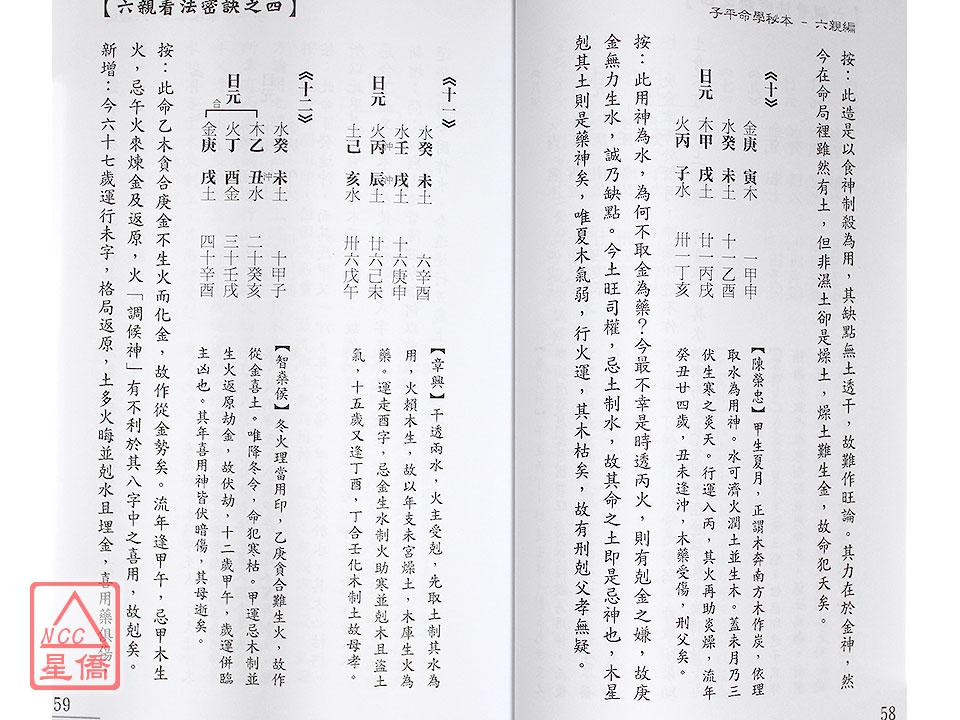 子平命學秘本 - 六親編
按：此造是以食神制殺為用，其缺點無土透干，故難作旺論。其力在於金神，然
今在命局裡雖然有土，但非濕土卻是燥土，燥土難生金，故命犯夭矣。
《十》
金庚 寅木 一甲申
水癸 未土 十一乙酉
日元 木甲 戌土 廿一丙戌
火丙 子水 卅一丁亥
【陳榮忠】甲生夏月，正謂木奔南方木作炭，依理
取水為用神。水可濟火潤土並生木。蓋未月乃三
伏生寒之炎天。行運八丙，其火再助炎燥，流年
癸丑廿四歲，丑未逢沖，木藥受傷，刑父矣。
按：此用神為水，為何不取金為藥？今最不幸是時透丙火，則有剋金之嫌，故庚
金無力生水，誠乃缺點。今土旺司權，忌土制水，故其命之土即是忌神也，木星
剋其土則是藥神矣，唯夏木氣弱，行火運，其木枯矣，故有刑剋父孝無疑。
58
【六親看法密訣之四】
《十一》
水癸 未土 六辛酉
水壬 戌土 十六庚申
日元 火丙 辰土 廿六己未
沖 沖
土己 亥水 卅六戊午
【章興】干透兩水，火主受剋，先取土制其水為
用，火賴木生，故以年支未宮燥土，木庫生火為
藥。運走酉字，忌金生水制火助寒並剋木且盜土
氣，十五歲又逢丁酉，丁合壬化木制土故母孝。
《十二》
水癸 未土 十甲子
沖
木乙 丑水 二十癸亥
日元 火丁 酉金 三十壬戌
合
金庚 戌土 四十辛酉
【智燊侯】冬火理當用印，乙庚貪合難生火，故作
從金喜土。唯降冬令，命犯寒枯。甲運忌木制並
生火返原劫金，故伏劫，十二歲甲午，歲運併臨
主凶也。其年喜用神皆伏暗傷，其母逝矣。
按：此命乙木貪合庚金不生火而化金，故作從金勢矣。流年逢甲午，忌甲木生
火，忌午火來煉金及返原，火「調候神」有不利於其八字中之喜用，故剋矣。
新增：今六十七歲運行未字，格局返原，土多火晦並剋水且埋金，喜用藥俱傷
59
NCC
星僑